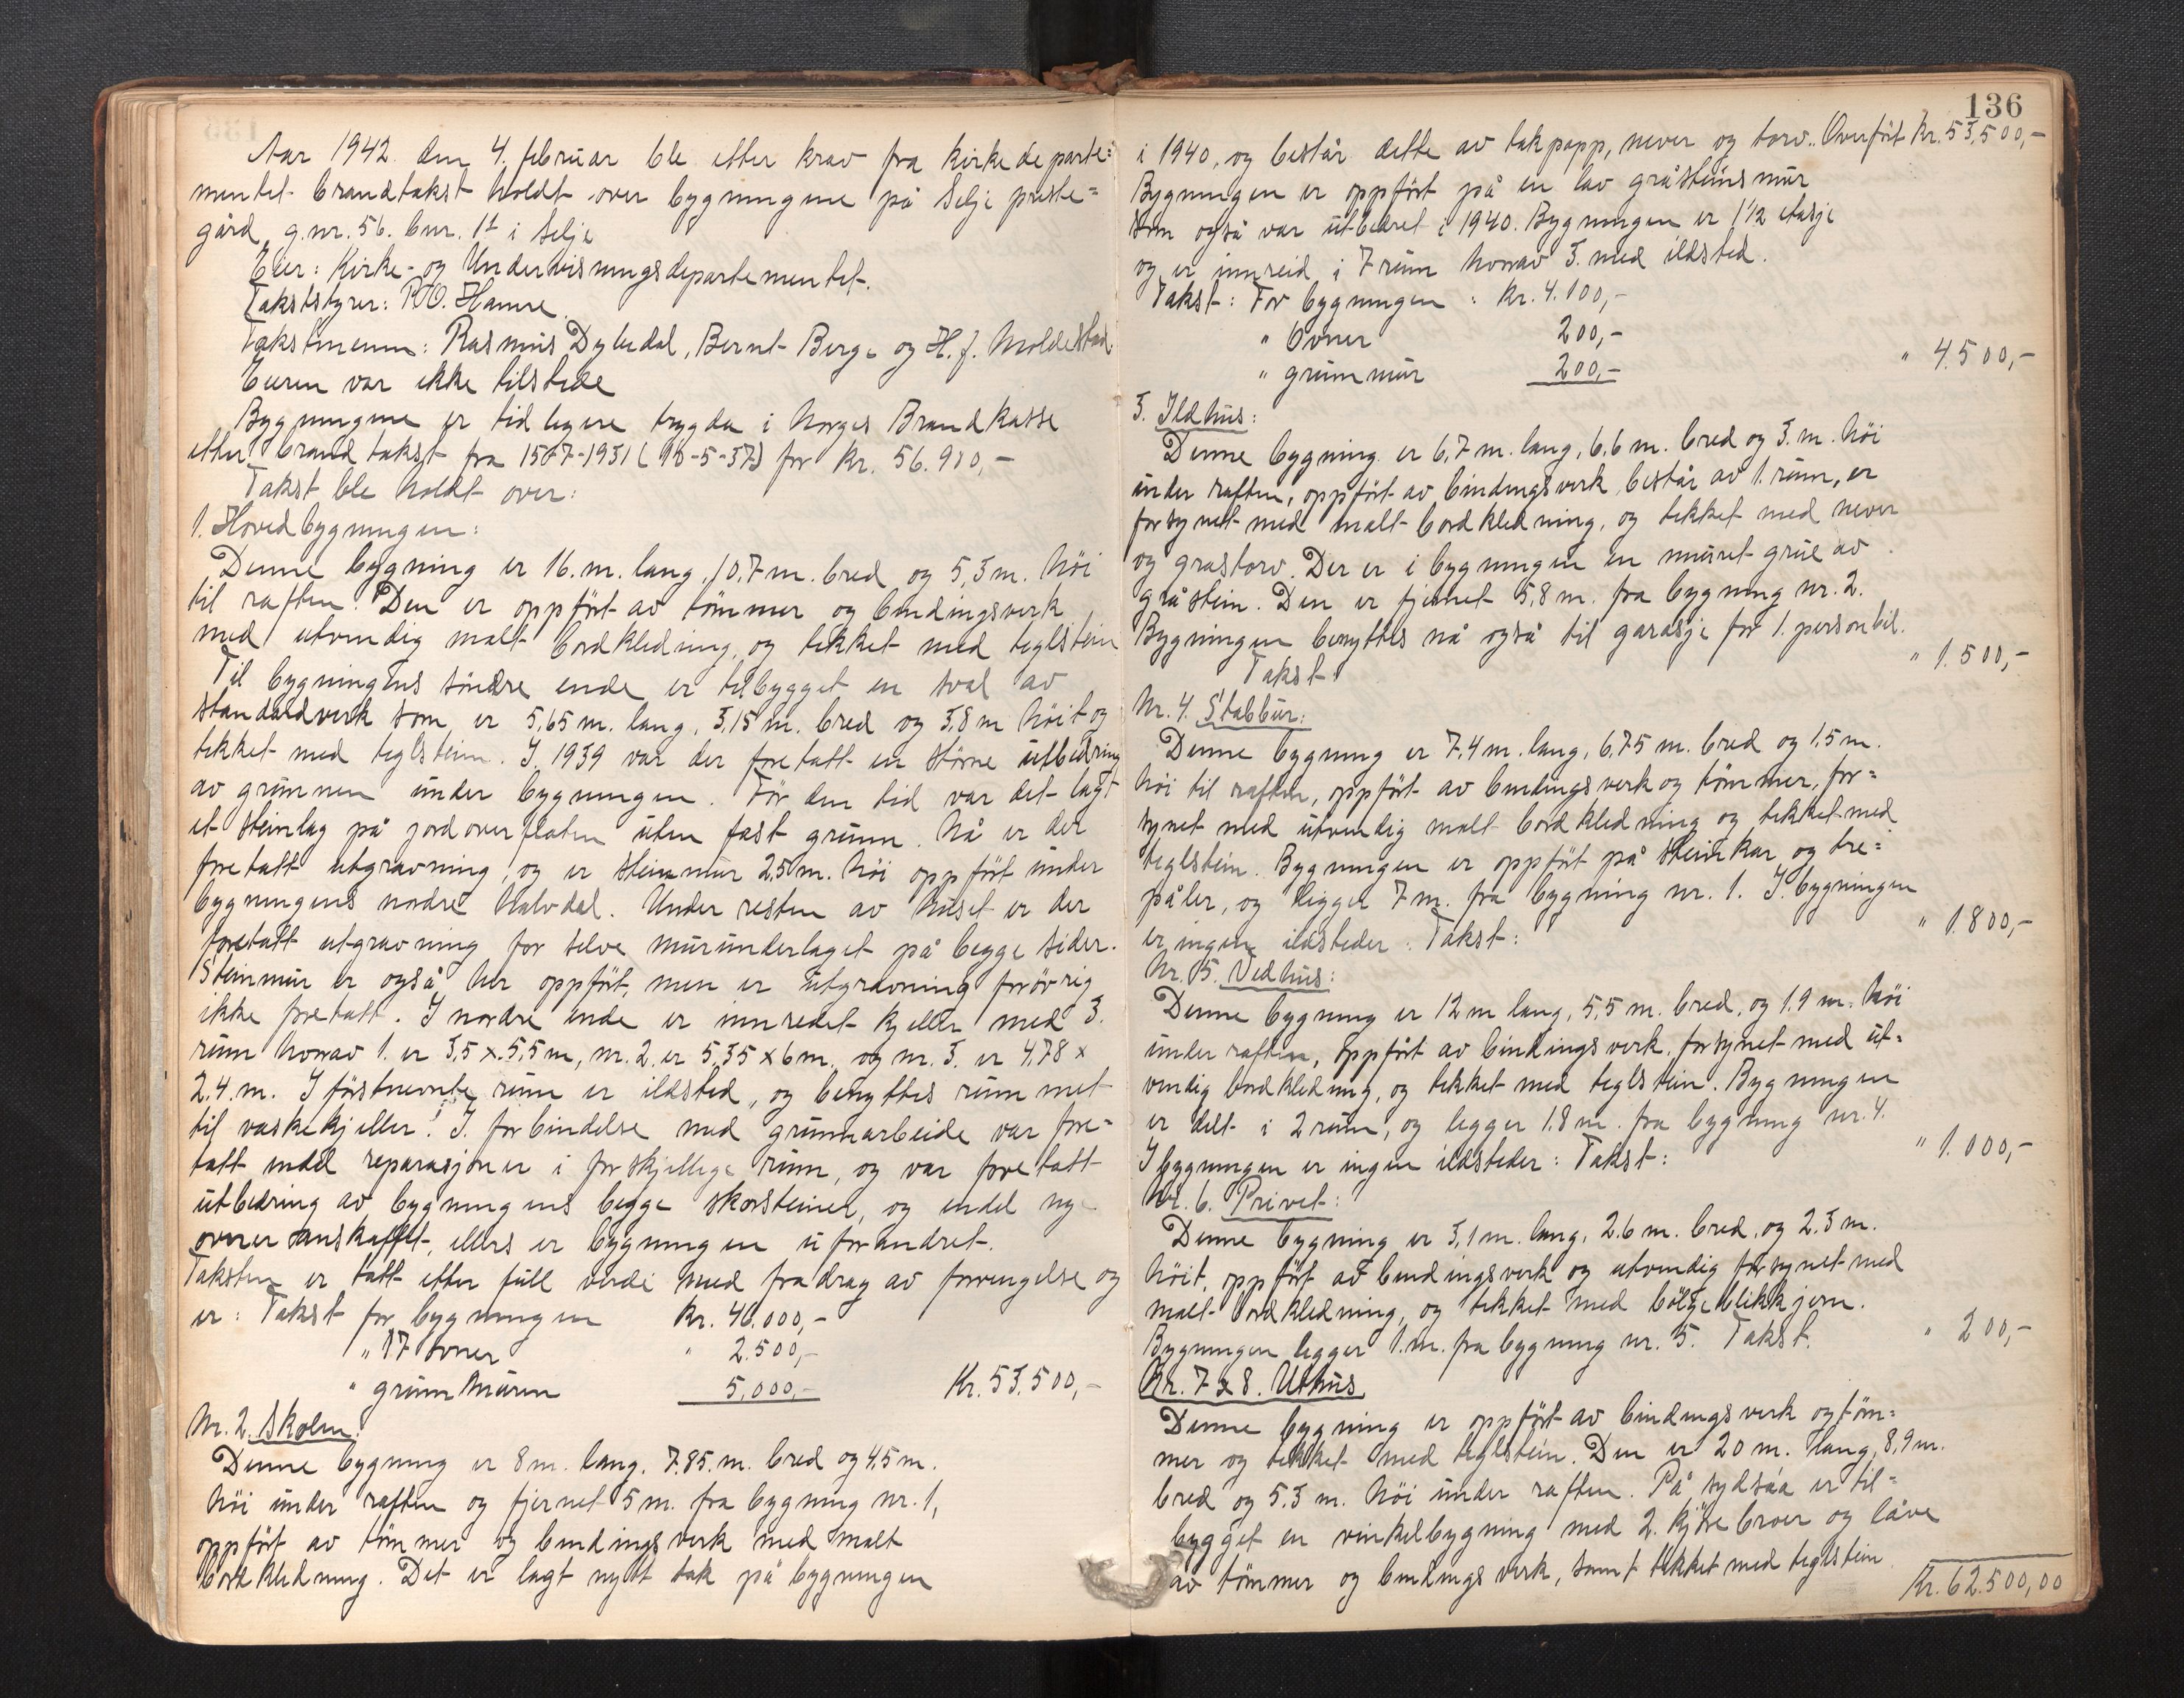 Aar 1942 den 4. februar ble etter krav fra Kirkedeparte=
mentet brandtakst holdt over bygningene på Selje preste=
gård, g.nr. 56. bnr. 1 i Selje
Eier: Kirke- og Undervisningsdepartementet.
Takststyrer: R.O. Hamre.
Takstmenn: Rasmus Dybedal, Bernt Berge og H. J. Moldestad.
Eieren var ikke tilstede
Bygningene er tidligere trygda i Norges Brandkasse
etter brandtakst fra 15-7-1931 ( -5-37) for kr. 56.900,-
Takst ble holdt over:
1. Hovedbygningen:
Denne bygning er 16. m. lang, 10.7 m. bred og 5,3 m. höi
til raften. Den er oppfört av tömmer og bindingsverk,
med utvendig malt bordkledning, og tekket med teglstein
Til bygningens söndre ende er tilbygget en sval av
standardverk som er 5,65 m. lang, 3,15 m. bred og 3,8 m höit og
tekket med teglstein. I 1939 var der foretatt en större utbedring
av grunnen under bygningen. För den tid var det lagt
et steinlag på jordoverflaten uten fast grunn. Nå er der
foretatt utgravning, og er steinmur 2,5 m. höi oppfört under
bygningens nordre halvdel. Under resten av huset er der
foretatt utgravning for selve murunderlaget på begge sider.
Steinmur er også her oppfört, men er utgravning forövrig
ikke foretatt. I nordre ende er innredet kjeller med 3.
rum hvorav 1. er 3,5 x 5,5 m, nr. 2. er 5,35 x 6 m. og nr. 3. er 4,78 x
2.4. m. I förstnevnte rum er ildsted, og benyttes rummet
til vaskekjeller. I forbindelse med grunnarbeide var fore=
tatt endel reparasjoner i forskjellige rum, og var foretatt
utbedring av bygningens begge skorsteiner, og endel nye
ovner anskaffet, ellers er bygningen uforandret.
Taksten er tatt etter full verdi med fradrag av forringelse og
er: Takst for bygningen kr. 46.000,-
" 17 ovner " 2.500,-
" grunnmuren 5,000,- Kr. 53.500,-
Nr. 2. Skolen:
Denne bygning er 8 m. lang, 7.85. m. bred og 4,5 m.
höi under raften og fjernet 5 m. fra bygning nr. 1,
oppfört av tömmer og bindingsverk med malt
bordkledning. Det er lagt nytt tak på bygningen
136
i 1940, og består dette av takpapp, never og torv. Overfört kr. 53,500,-
Bygningen er oppfört på en lav gråsteinsmur
som også var utbedret i 1940. Bygningen er 1 1/2 etasje
og er innreid i 7 rum hvorav 3. med ildsted.
Takst: For bygningen: kr. 4.100,-
" Ovner 200,-
" grunnmur 200,- " 4.500,-
3. Ildhus:
Denne bygning er 6,7 m. lang, 6,6 m. bred og 3. m. höi
under raften, oppfört av bindingsverk, består av 1. rum, er
forsynet med malt bordkledning, og tekket med never
og grastorv. Der er i bygningen en muret grue av
gråstein. Den er fjernet 5,8 m. fra bygning nr. 2.
Bygningen benyttes nå også til garasje for 1. personbil.
Takst: " 1.500,-
Nr. 4. Stabbur:
Denne bygning er 7,4 m. lang, 6,75 m. bred og 1,5 m.
höi til raften, oppfört av bindingsverk og tömmer, for=
synet med utvendig malt bordkledning og tekket med
teglstein. Bygningen er oppfört på steinkar og tre=
påler, og ligger 7 m. fra bygning nr. 1. I bygningen
er ingen ildsteder. Takst: " 1.800,-
Nr. 5. Vedhus:
Denne bygning er 12 m lang, 5,5 m. bred, og 1.9 m. höi
under raften, oppfört av bindingsverk, forsynet med ut=
vendig bordkledning, og tekket med teglstein. Bygningen
er delt i 2 rum, og legger 1.8 m. fra bygning nr. 4.
I bygningen er ingen ildsteder: Takst: " 1.000,-
Nr. 6. Privet:
Denne bygning er 3,1 m. lang, 2.6 m. bred, og 2.3 m.
höit, oppfört av bindingsverk og utvendig forsynet med
malt bordkledning, og tekket med bölgeblikkjern.
Bygningen legger 1. m. fra bygning nr. 5. Takst. " 200,-
Nr. 7 x 8. Uthus
Denne bygning er oppfört av bindingsverk og töm=
mer og tekket med teglstein. Den er 20 m. lang, 8,9 m.
bred og 5.3 m. höi under raften. På sydsida er til=
bygget en vinkelbygning med 2. kjörebroer og låve
av tömmer og bindingsverk, samt tekket med teglstein.
Kr. 62.500,00